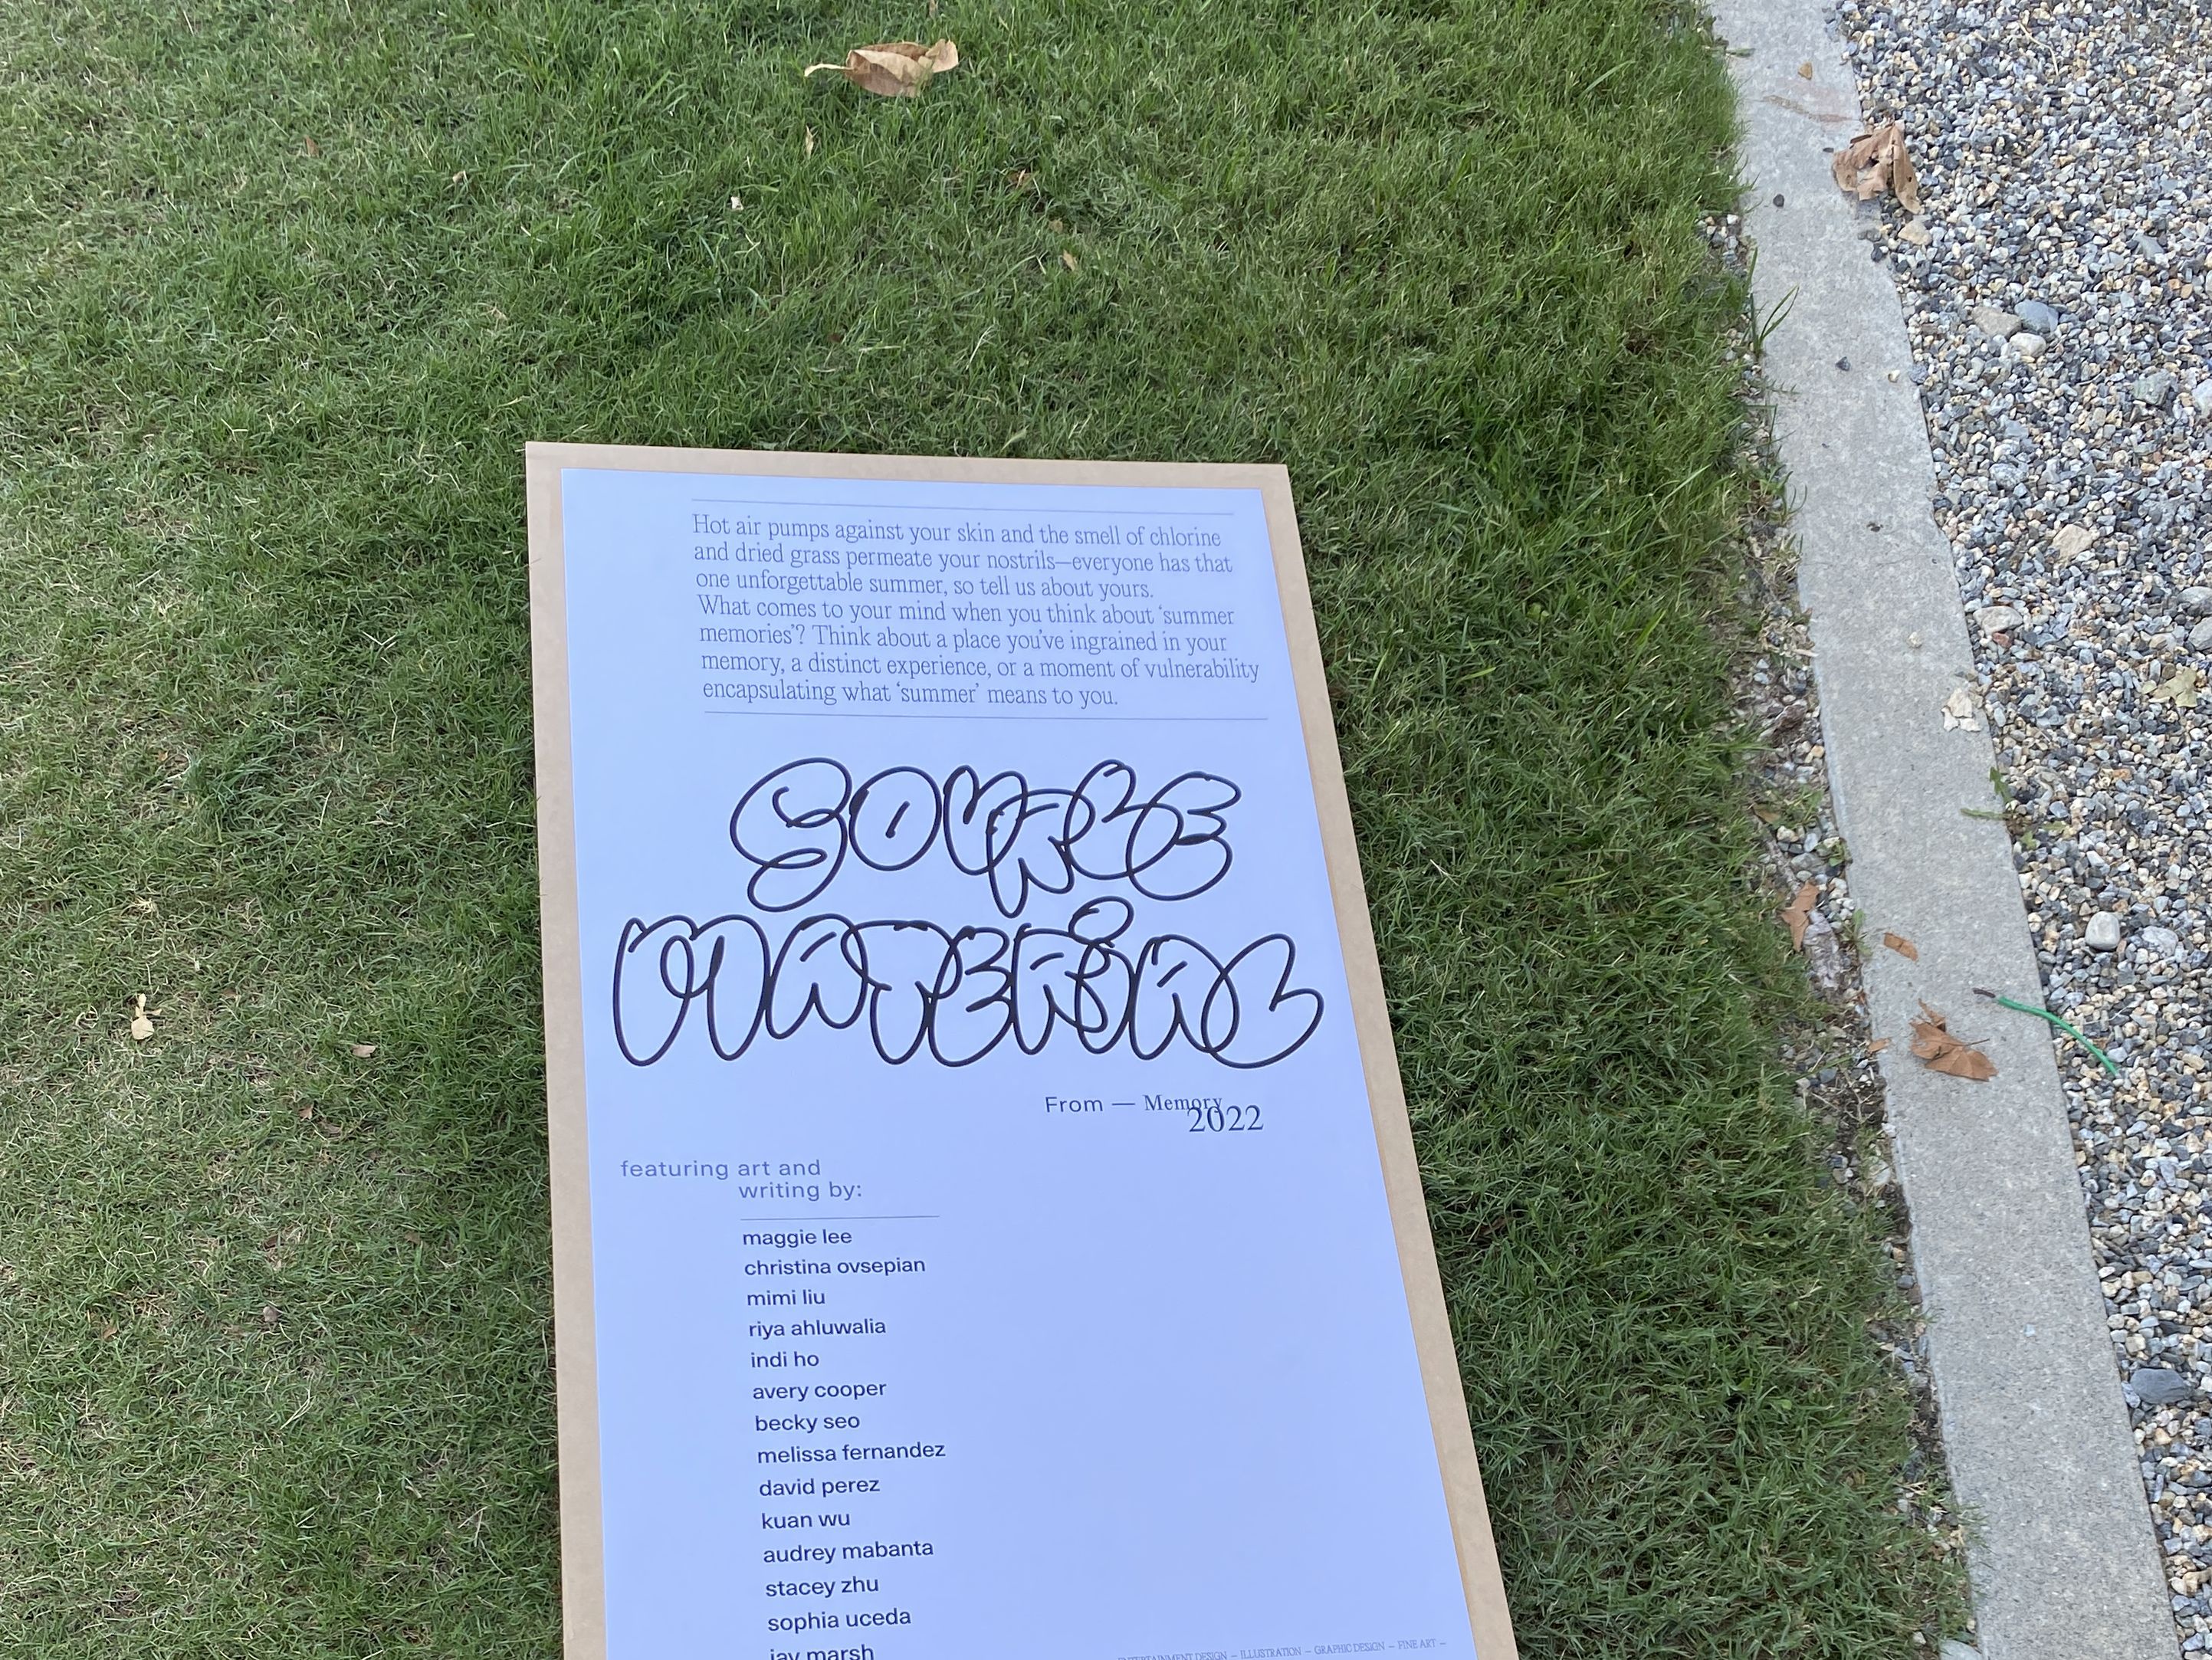 Hot air pumps against your skin and the smell of chlorine
and dried grass permeate your nostrils—everyone has that
one unforgettable summer, so tell us about yours.
What comes to your mind when you think about ‘summer
memories’? Think about a place you’ve ingrained in your
memory, a distinct experience, or a moment of vulnerability
encapsulating what ‘summer’ means to you.
SOURCE
MATERIAL
From — Memory
2022
featuring art and
writing by:
maggie lee
christina ovsepian
mimi liu
riya ahluwalia
indi ho
avery cooper
becky seo
melissa fernandez
david perez
kuan wu
audrey mabanta
stacey zhu
sophia uceda
jay marsh
ENTERTAINMENT DESIGN — ILLUSTRATION — GRAPHIC DESIGN — FINE ART —